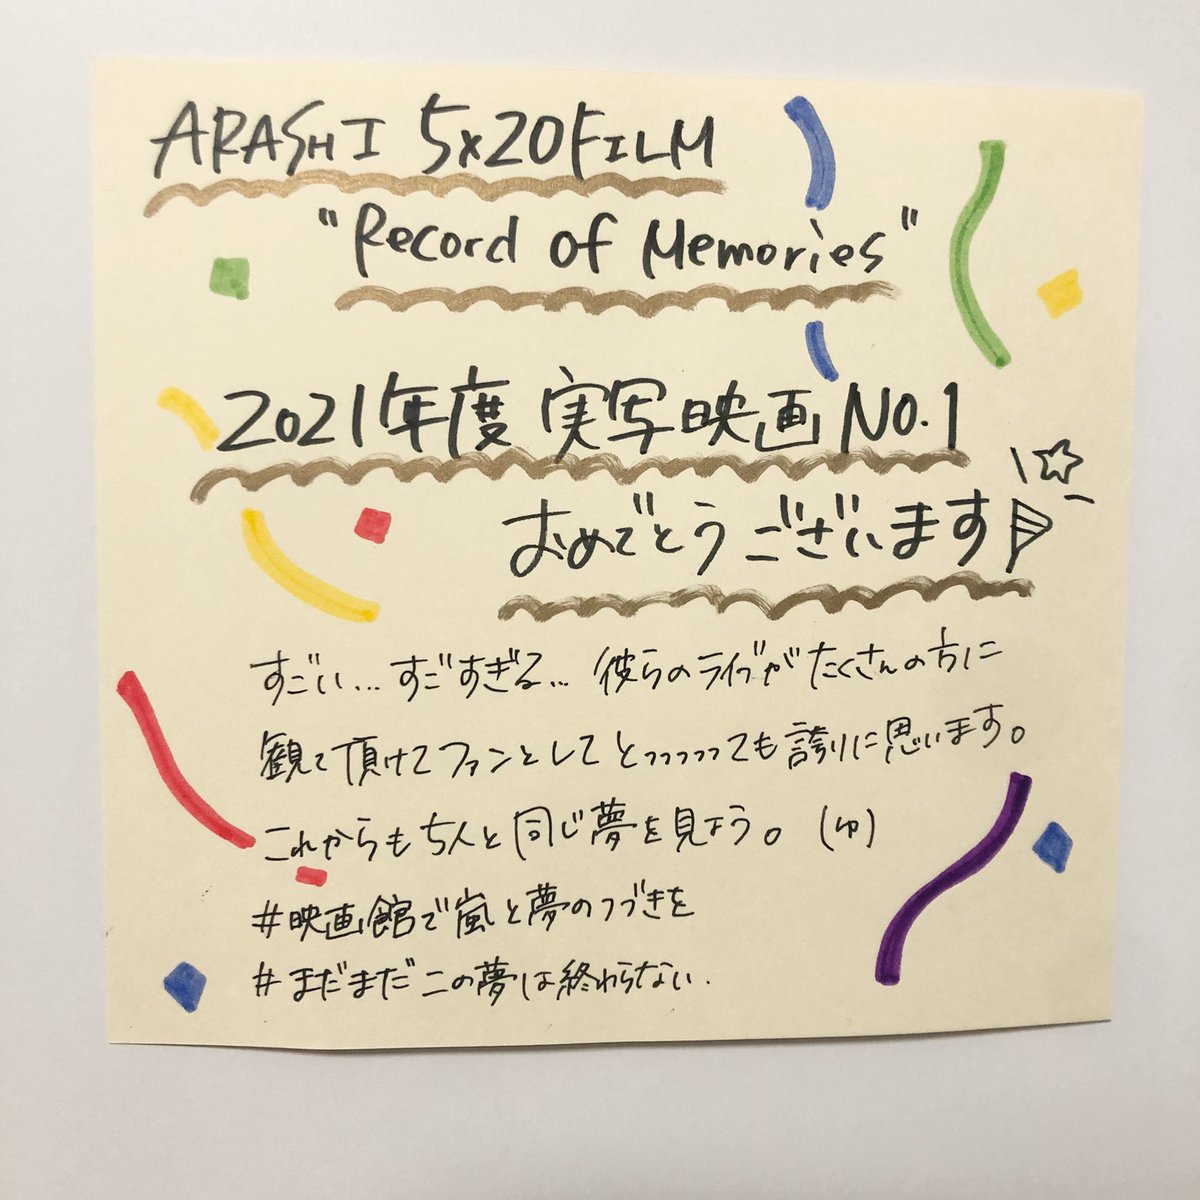 ARASHI 5×20 FILM
"Record of Memories"
2021年度 実写映画 NO.1
おめでとうございます
すごい...すごすぎる... 彼らのライブがたくさんの方に
観て頂けてファンとしてとっっっっっても誇りに思います。
これからも5人と同じ夢を見よう。(ゆ)
#映画館で嵐と夢のつづきを
#まだまだこの夢は終わらない.